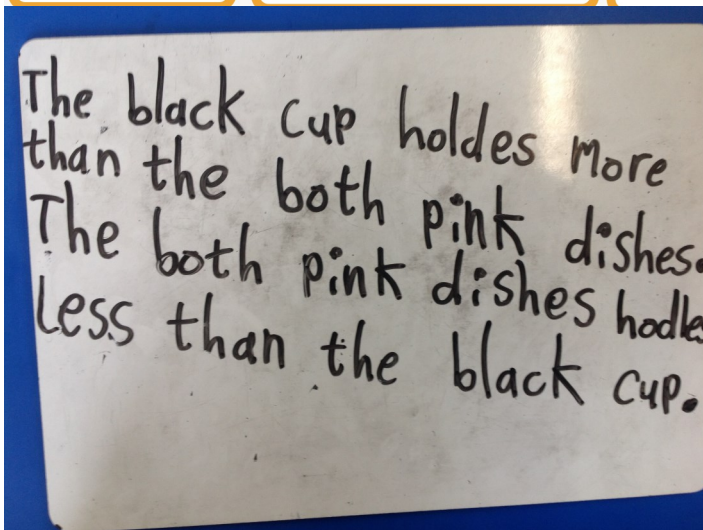 The black cup holdes more
than the both pink dishes.
The both pink dishes hodles
less than the black cup.